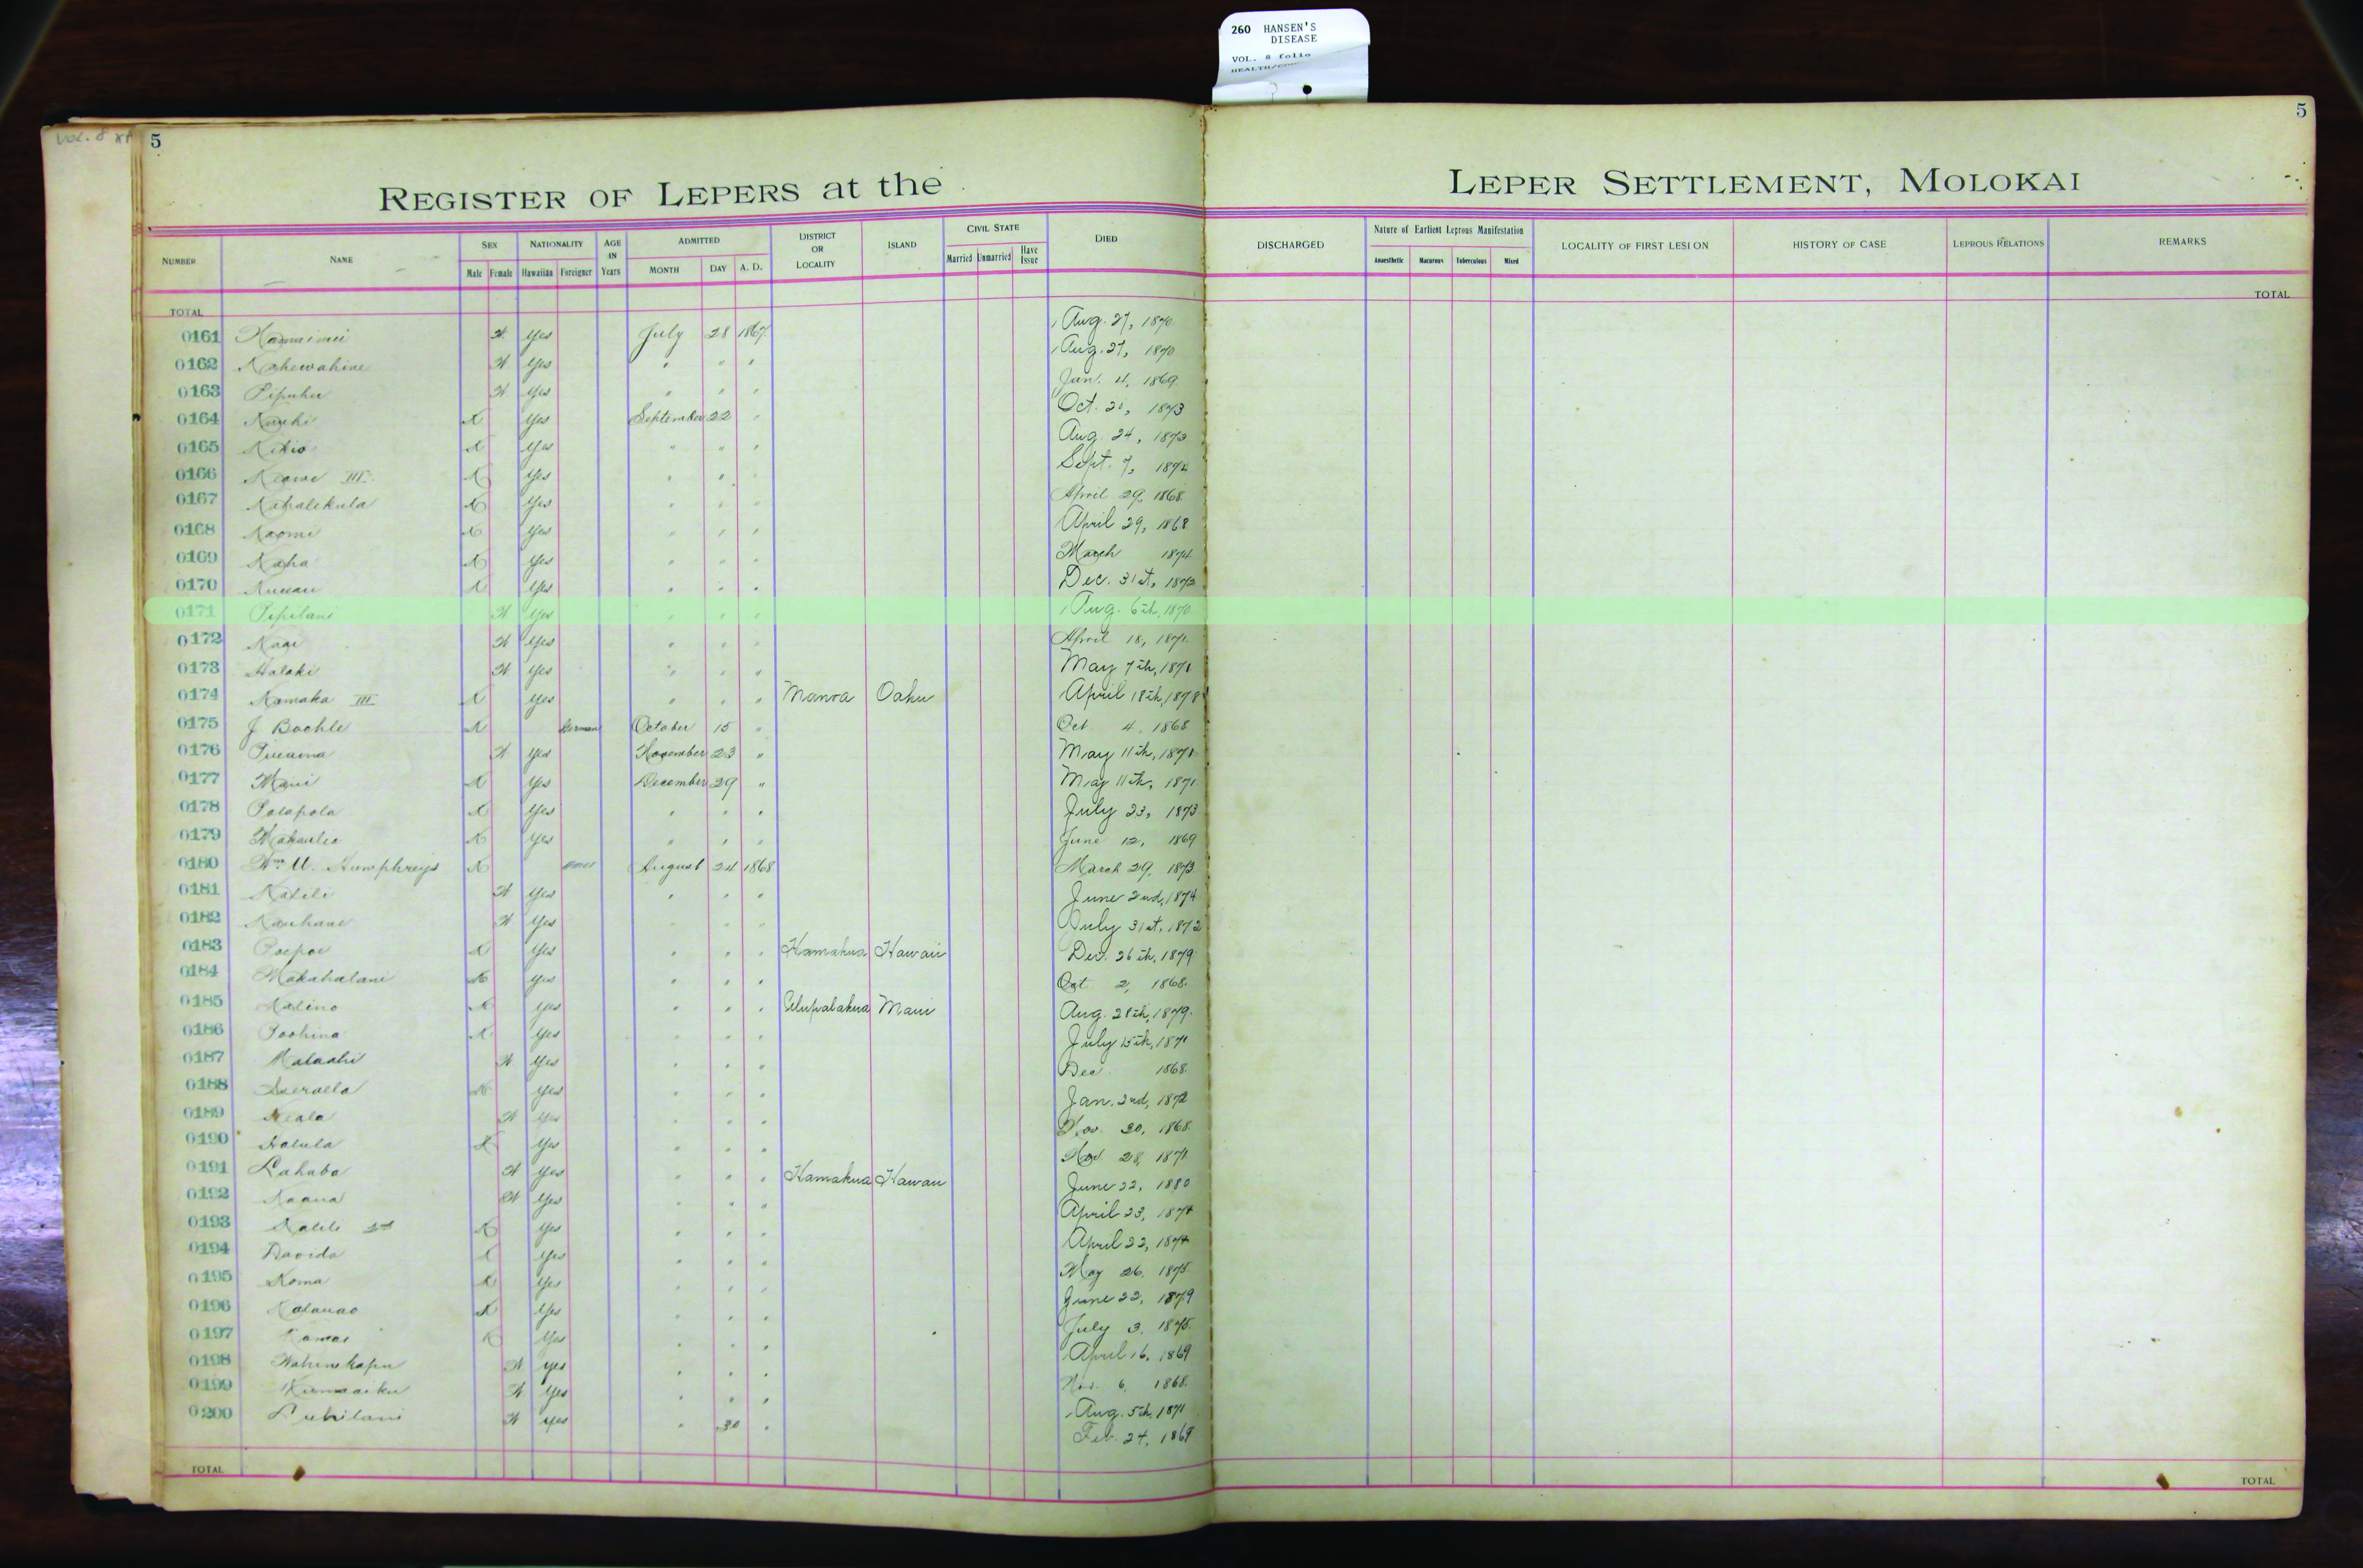 260 HANSEN'S
DISEASE
VOL. 8 folio
VOL. 8
5
5
REGISTER OF LEPERS at the LEPER SETTLEMENT, MOLOKAI
NUMBER NAME SEX Male Female NATIONALITY Hawaiian Foreigner AGE IN Years ADMITTED MONTH DAY A. D. DISTRICT OR LOCALITY ISLAND CIVIL STATE Married Unmarried Have Issue DIED DISCHARGED Nature of Earliest Leprous Manifestation Anaesthetic Macurous Tuberculous Mixed LOCALITY OF FIRST LESION HISTORY OF CASE LEPROUS RELATIONS REMARKS
TOTAL TOTAL
0161 Yes July 28 1867 Aug. 27, 1870
0162 Kahewahine Yes " " " Aug. 27, 1870
0163 Pipuhu Yes " " " Jan. 4, 1869
0164 Yes September 22 " Oct. 1873
0165 Yes " " " Aug. 24, 1873
0166 Keawe III Yes " " " Sept. 7, 1874
0167 Kahalekula Yes " " " April 29, 1868
0168 Naomi Yes " " " April 29, 1868
0169 Kaha Yes " " " March 1874
0170 Yes " " " Dec. 31st, 1873
0171 Pipilani Yes " " " Aug. 6th, 1870
0172 Yes " " " April 18, 1871
0173 Halaki Yes " " " May 7th, 1871
0174 Kamaka III Yes " " " Manoa Oahu April 18th, 1878
0175 J Bochle German October 15 " Oct 4, 1868
0176 Yes November 23 " May 11th, 1871
0177 Maui Yes December 29 " May 11th, 1871
0178 Polapola Yes " " " July 23, 1873
0179 Yes " " " June 12, 1869
0180 Wm. Humphreys August 24 1868 March 29, 1873
0181 Kalili Yes " " " June 2nd, 1874
0182 Kauhane Yes " " " July 31st, 1872
0183 Poepoe Yes " " " Hamakua Hawaii Dec. 26th, 1879
0184 Makahalani Yes " " " Oct 2, 1868
0185 Kalino Yes " " " Ulupalakua Maui Aug. 28th, 1879
0186 Poohina Yes " " " July 15th, 1871
0187 Malaahi Yes " " " Dec 1868
0188 Yes " " " Jan. 2nd, 1872
0189 Keala Yes " " " Nov. 30, 1868
0190 Halula Yes " " " Nov. 28, 1871
0191 Lahaba Yes " " " Hamakua Hawaii June 22, 1880
0192 Kaaua Yes " " " April 23, 1874
0193 Kalili 2nd Yes " " " April 22, 1874
0194 Davida Yes " " " May 26, 1875
0195 Koma Yes " " " June 22, 1879
0196 Kalauao Yes " " " July 3, 1875
0197 Kamai Yes " " " April 16, 1869
0198 Wahinekapu Yes " " " Nov. 6, 1868
0199 Yes " " " Aug. 5th, 1871
0200 Yes " 30 " Feb. 24, 1869
TOTAL TOTAL